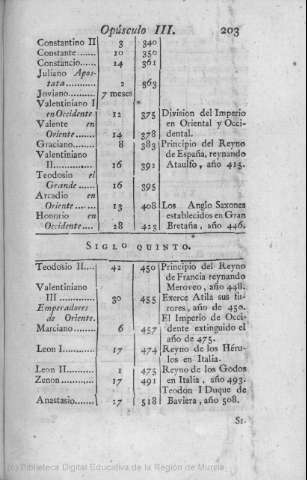 Opúsculo III. 203
Constantino II 3 340
Constante 10 350
Constancio 14 361
Juliano Apos-
tata 2 363
Joviano 7 meses
Valentiniano I
en Occidente 12 375 Division del Imperio
Valente en en Oriental y Occi-
Oriente 14 378 dental.
Graciano 8 383 Principio del Reyno
Valentiniano de España, reynando
II 16 392 Ataulfo, año 415.
Teodosio el
Grande 16 395
Arcadio en
Oriente 13 408 Los Anglo Saxones
Honorio en establecidos en Gran
Occidente 28 423 Bretaña, año 446.
SIGLO QUINTO.
Teodosio II 42 450 Principio del Reyno
de Francia reynando
Valentiniano Meroveo, año 448.
III 30 455 Exerce Atila sus fu-
Emperadores rores, año de 450.
de Oriente. El Imperio de Occi-
Marciano 6 457 dente extinguido el
año de 475.
Leon I 17 474 Reyno de los Héru-
los en Italia.
Leon II 1 475 Reyno de los Godos
Zenon 17 491 en Italia, año 493.
Teodon I Duque de
Anastasio 27 518 Baviera, año 508.
Si-
(c) Biblioteca Digital Educativa de la Región de Murcia